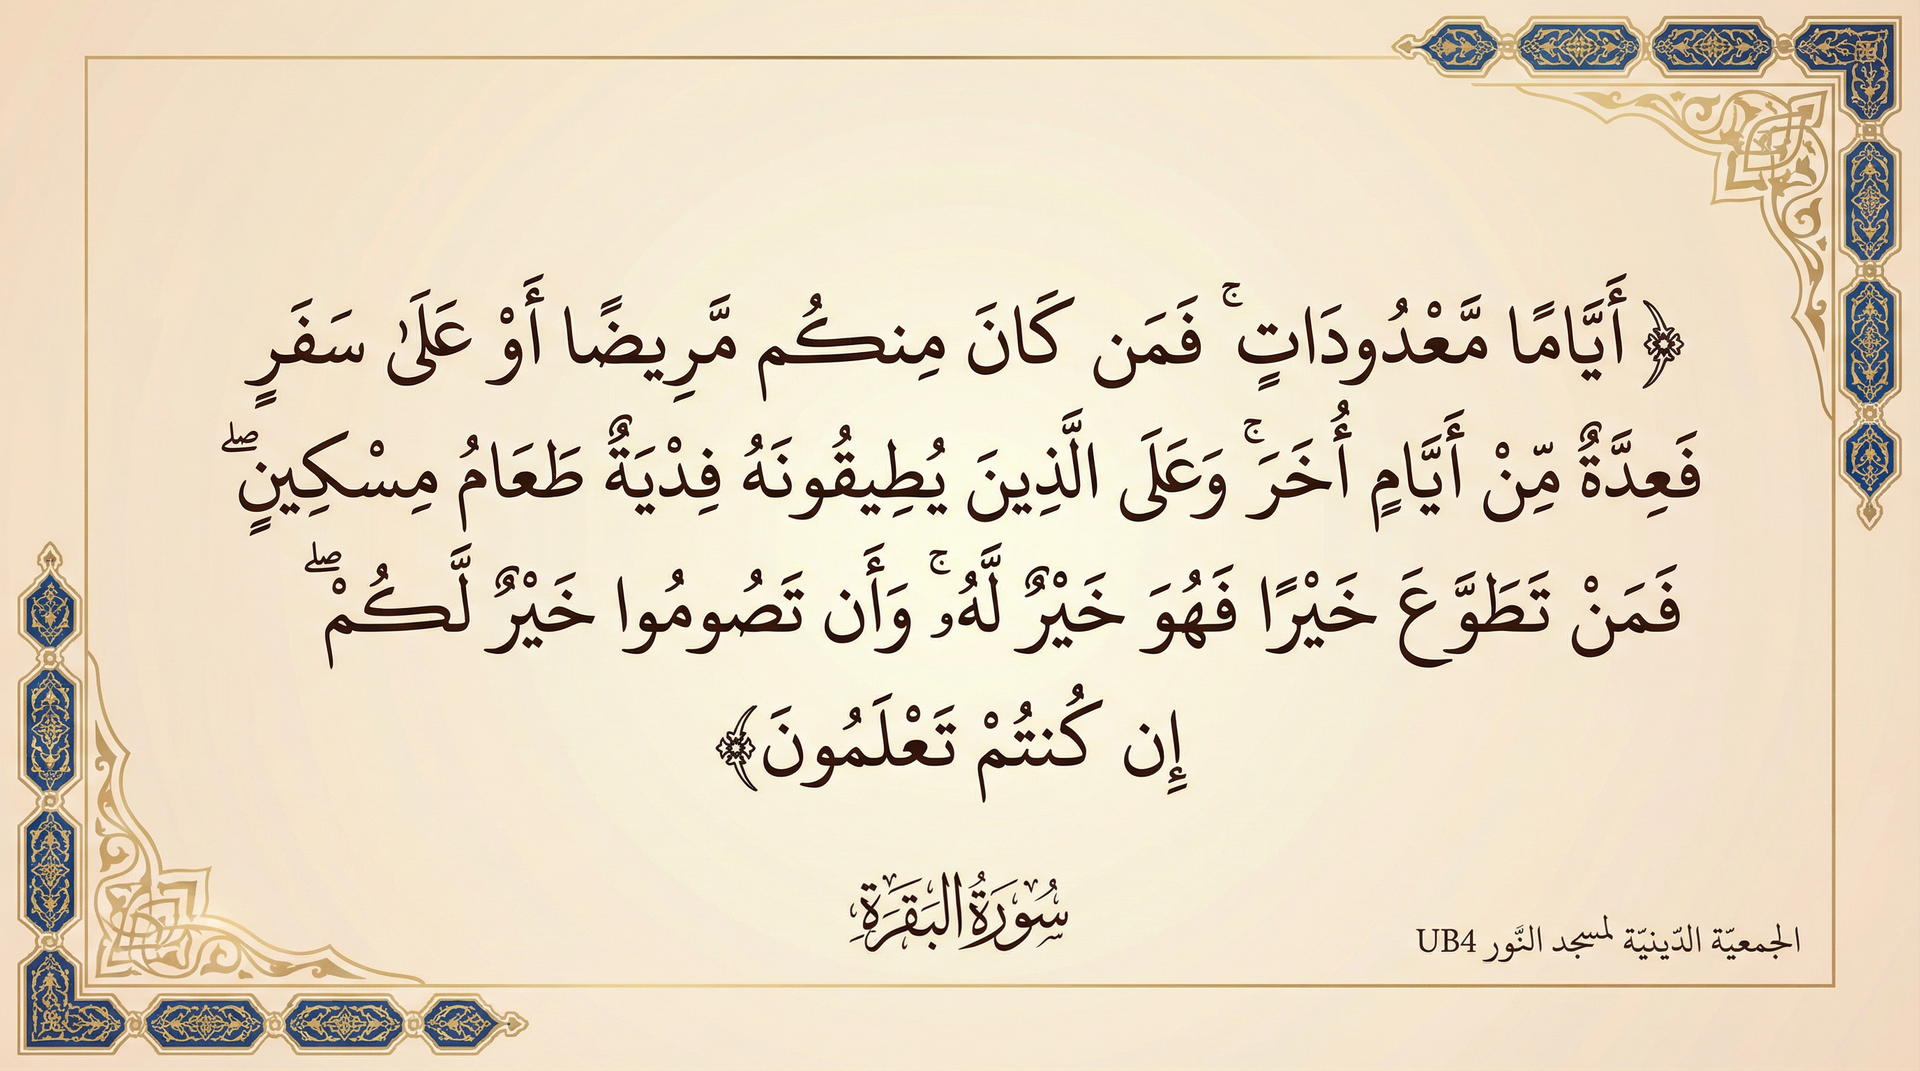 ﴿أَيَّامًا مَّعْدُودَاتٍ ۚ فَمَن كَانَ مِنكُم مَّرِيضًا أَوْ عَلَىٰ سَفَرٍ
فَعِدَّةٌ مِّنْ أَيَّامٍ أُخَرَ ۚ وَعَلَى الَّذِينَ يُطِيقُونَهُ فِدْيَةٌ طَعَامُ مِسْكِينٍ ۖ
فَمَنْ تَطَوَّعَ خَيْرًا فَهُوَ خَيْرٌ لَّهُۥ ۚ وَأَن تَصُومُوا خَيْرٌ لَّكُمْ ۖ
إِن كُنتُمْ تَعْلَمُونَ﴾
سُورَةُ البَقَرَةِ
الجمعيّة الدّينيّة لمسجد النَّور UB4